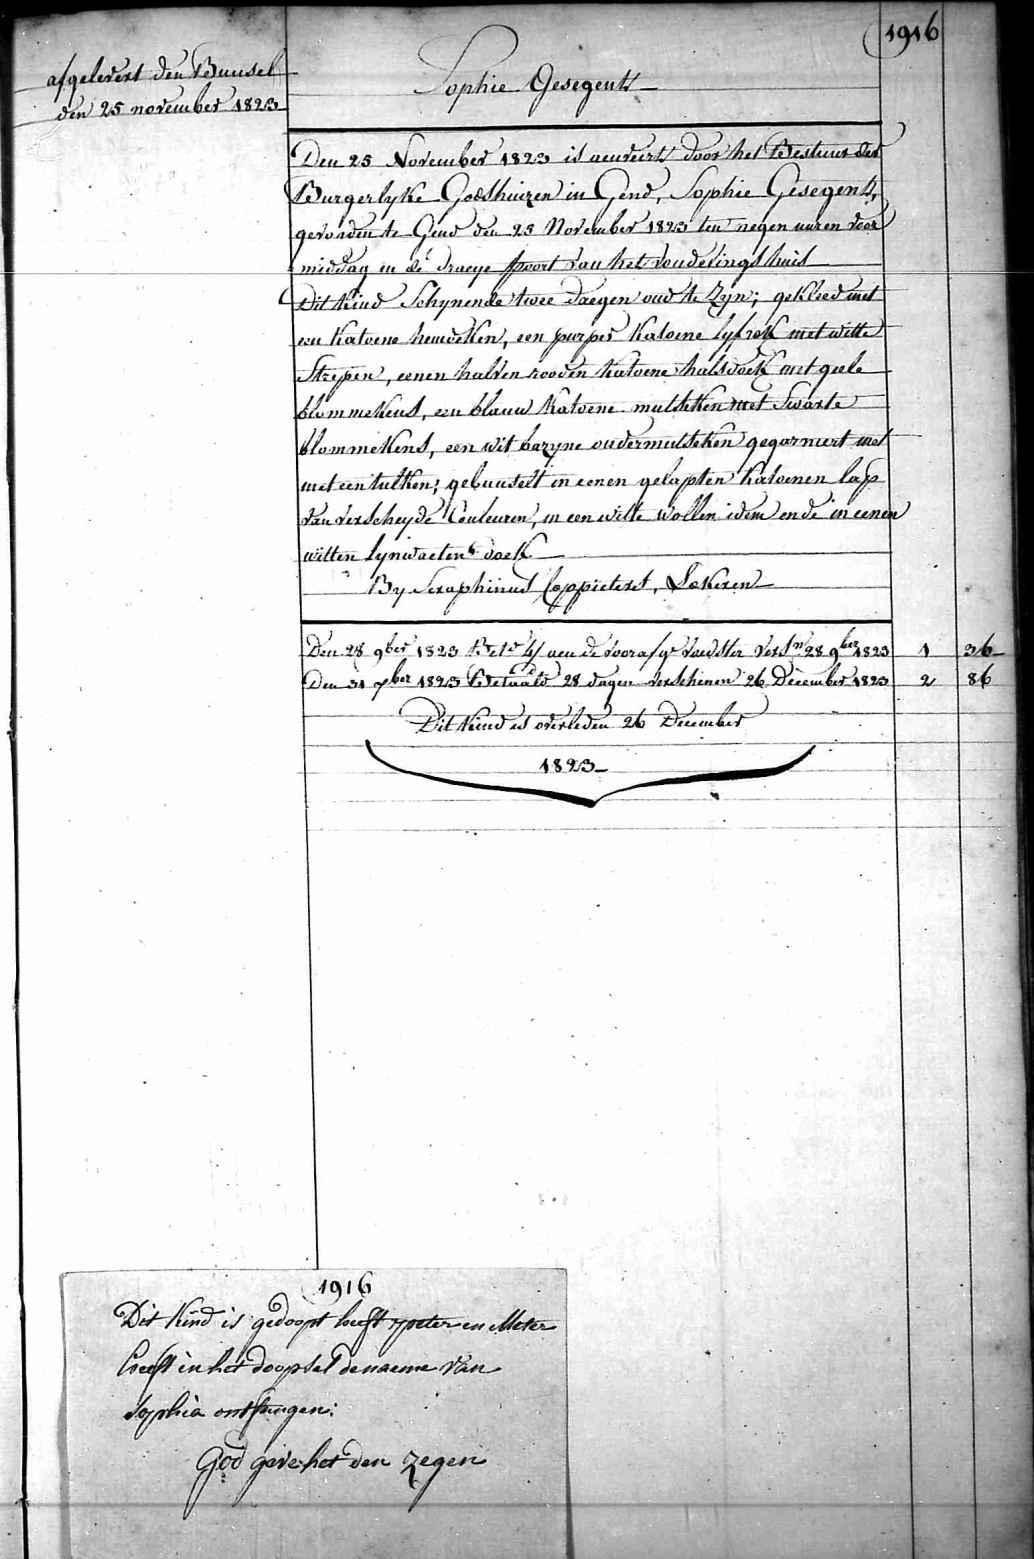 1916
afgelevert den Bunsel
den 25 november 1823
Sophie Gesegent
Den 25 November 1823 is aenveert door het Bestuur der
Burgerlyke Godshuizen in Gend, Sophie Gesegent,
gevonden te Gend den 25 November 1823 ten negen uuren voor
middag in de draeye poort van het vondelingshuis
Dit kind Schynende twee daegen oud te Zyn; gekleed met
een katoene hemdeken, een purper katoene lyfrok met witte
Strepen, eenen halven rooden katoene halsdoek met geele
blommekens, een blauw katoene mutseken met Swarte
blommekens, een wit bazyne ondermutseken gegarniert met
met een tulken; gebunselt in eenen gelapten katoenen lap
van verscheyde Couleuren, in een witte wollen idem ende in eenen
witten lynwaeten doek
By Seraphinus Coppieters, Lokeren
Den 28 9ber 1823 Bet. aen de voorafge voedster 28 9ber 1823 1 36
Den 31 xber 1823 Betaald 28 dagen verschenen 26 December 1823 2 86
Dit kind is overleden 26 December
1823
1916
Dit kind is gedoopt heeft peter en Meter
heeft in het doopsel de naeme van
Sophia ontfangen:
God geve het den zegen